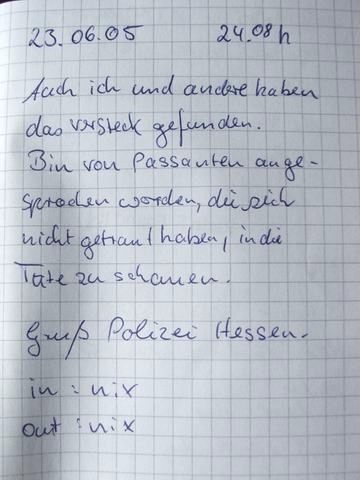 23.06.05 24.08h
Auch ich und andere haben
das Versteck gefunden.
Bin von Passanten ange-
sprochen worden, die sich
nicht getraut haben, in die
Tüte zu schauen.
Gruß Polizei Hessen.
in : nix
out : nix